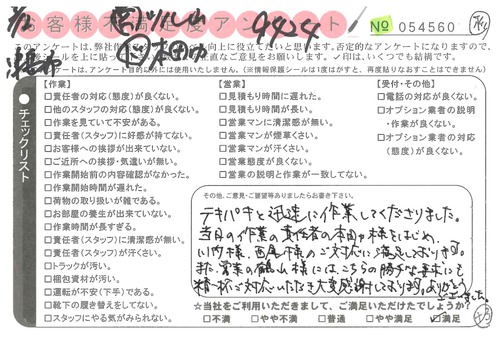 お客様不満足度アンケート
9424
№ 054560
このアンケートは、弊社
向上に役立てたいと思います。否定的なアンケートになりますので、
直なご意見をお聞かせ下さい。✓印は、いくつでも結構です。
アンケート目的以外には使用いたしません。(※情報保護シールは1度はがすと、再度貼りなおすことができません)
チェックリスト
【作業】
□責任者の対応(態度)が良くない。
□他のスタッフの対応(態度)が良くない。
□作業を見ていて不安がある。
□責任者(スタッフ)に好感が持てない。
□お客様への挨拶が出来ていない。
□ご近所への挨拶・気遣いが無い。
□作業開始前の内容確認がなかった。
□作業開始時間が遅れた。
□荷物の取り扱いが雑である。
□お部屋の養生が出来ていない。
□作業時間が長すぎる。
□責任者(スタッフ)に清潔感が無い。
□責任者(スタッフ)が汗くさい。
□トラックが汚い。
□梱包資材が汚い。
□運転が不安(下手)である。
□靴下の履き替えをしてない。
□スタッフにやる気がみられない。
【営業】
□見積もり時間に遅れた。
□見積もり時間が長い。
□営業マンに清潔感が無い。
□営業マンが煙草くさい。
□営業マンが汗くさい。
□営業態度が良くない。
□営業の説明と作業が一致してない。
【受付・その他】
□電話の対応が良くない。
□オプション業者の説明
・作業が良くない。
□オプション業者の対応
(態度)が良くない。
その他、ご意見・ご要望等ありましたらお書き下さい。
テキパキと迅速に作業してくださりました。
当日の作業の責任者の本田力様をはじめ、
様、西尾様のご対応に満足しております。
また、営業の鶴山様には、こちらの勝手な要求にも
精一杯ご対応いただき大変感謝しております。ありがとう
ございました。
☆当社をご利用いただきまして、ご満足いただけましたでしょうか?
□不満 □やや不満 □普通 □やや満足 ☑満足